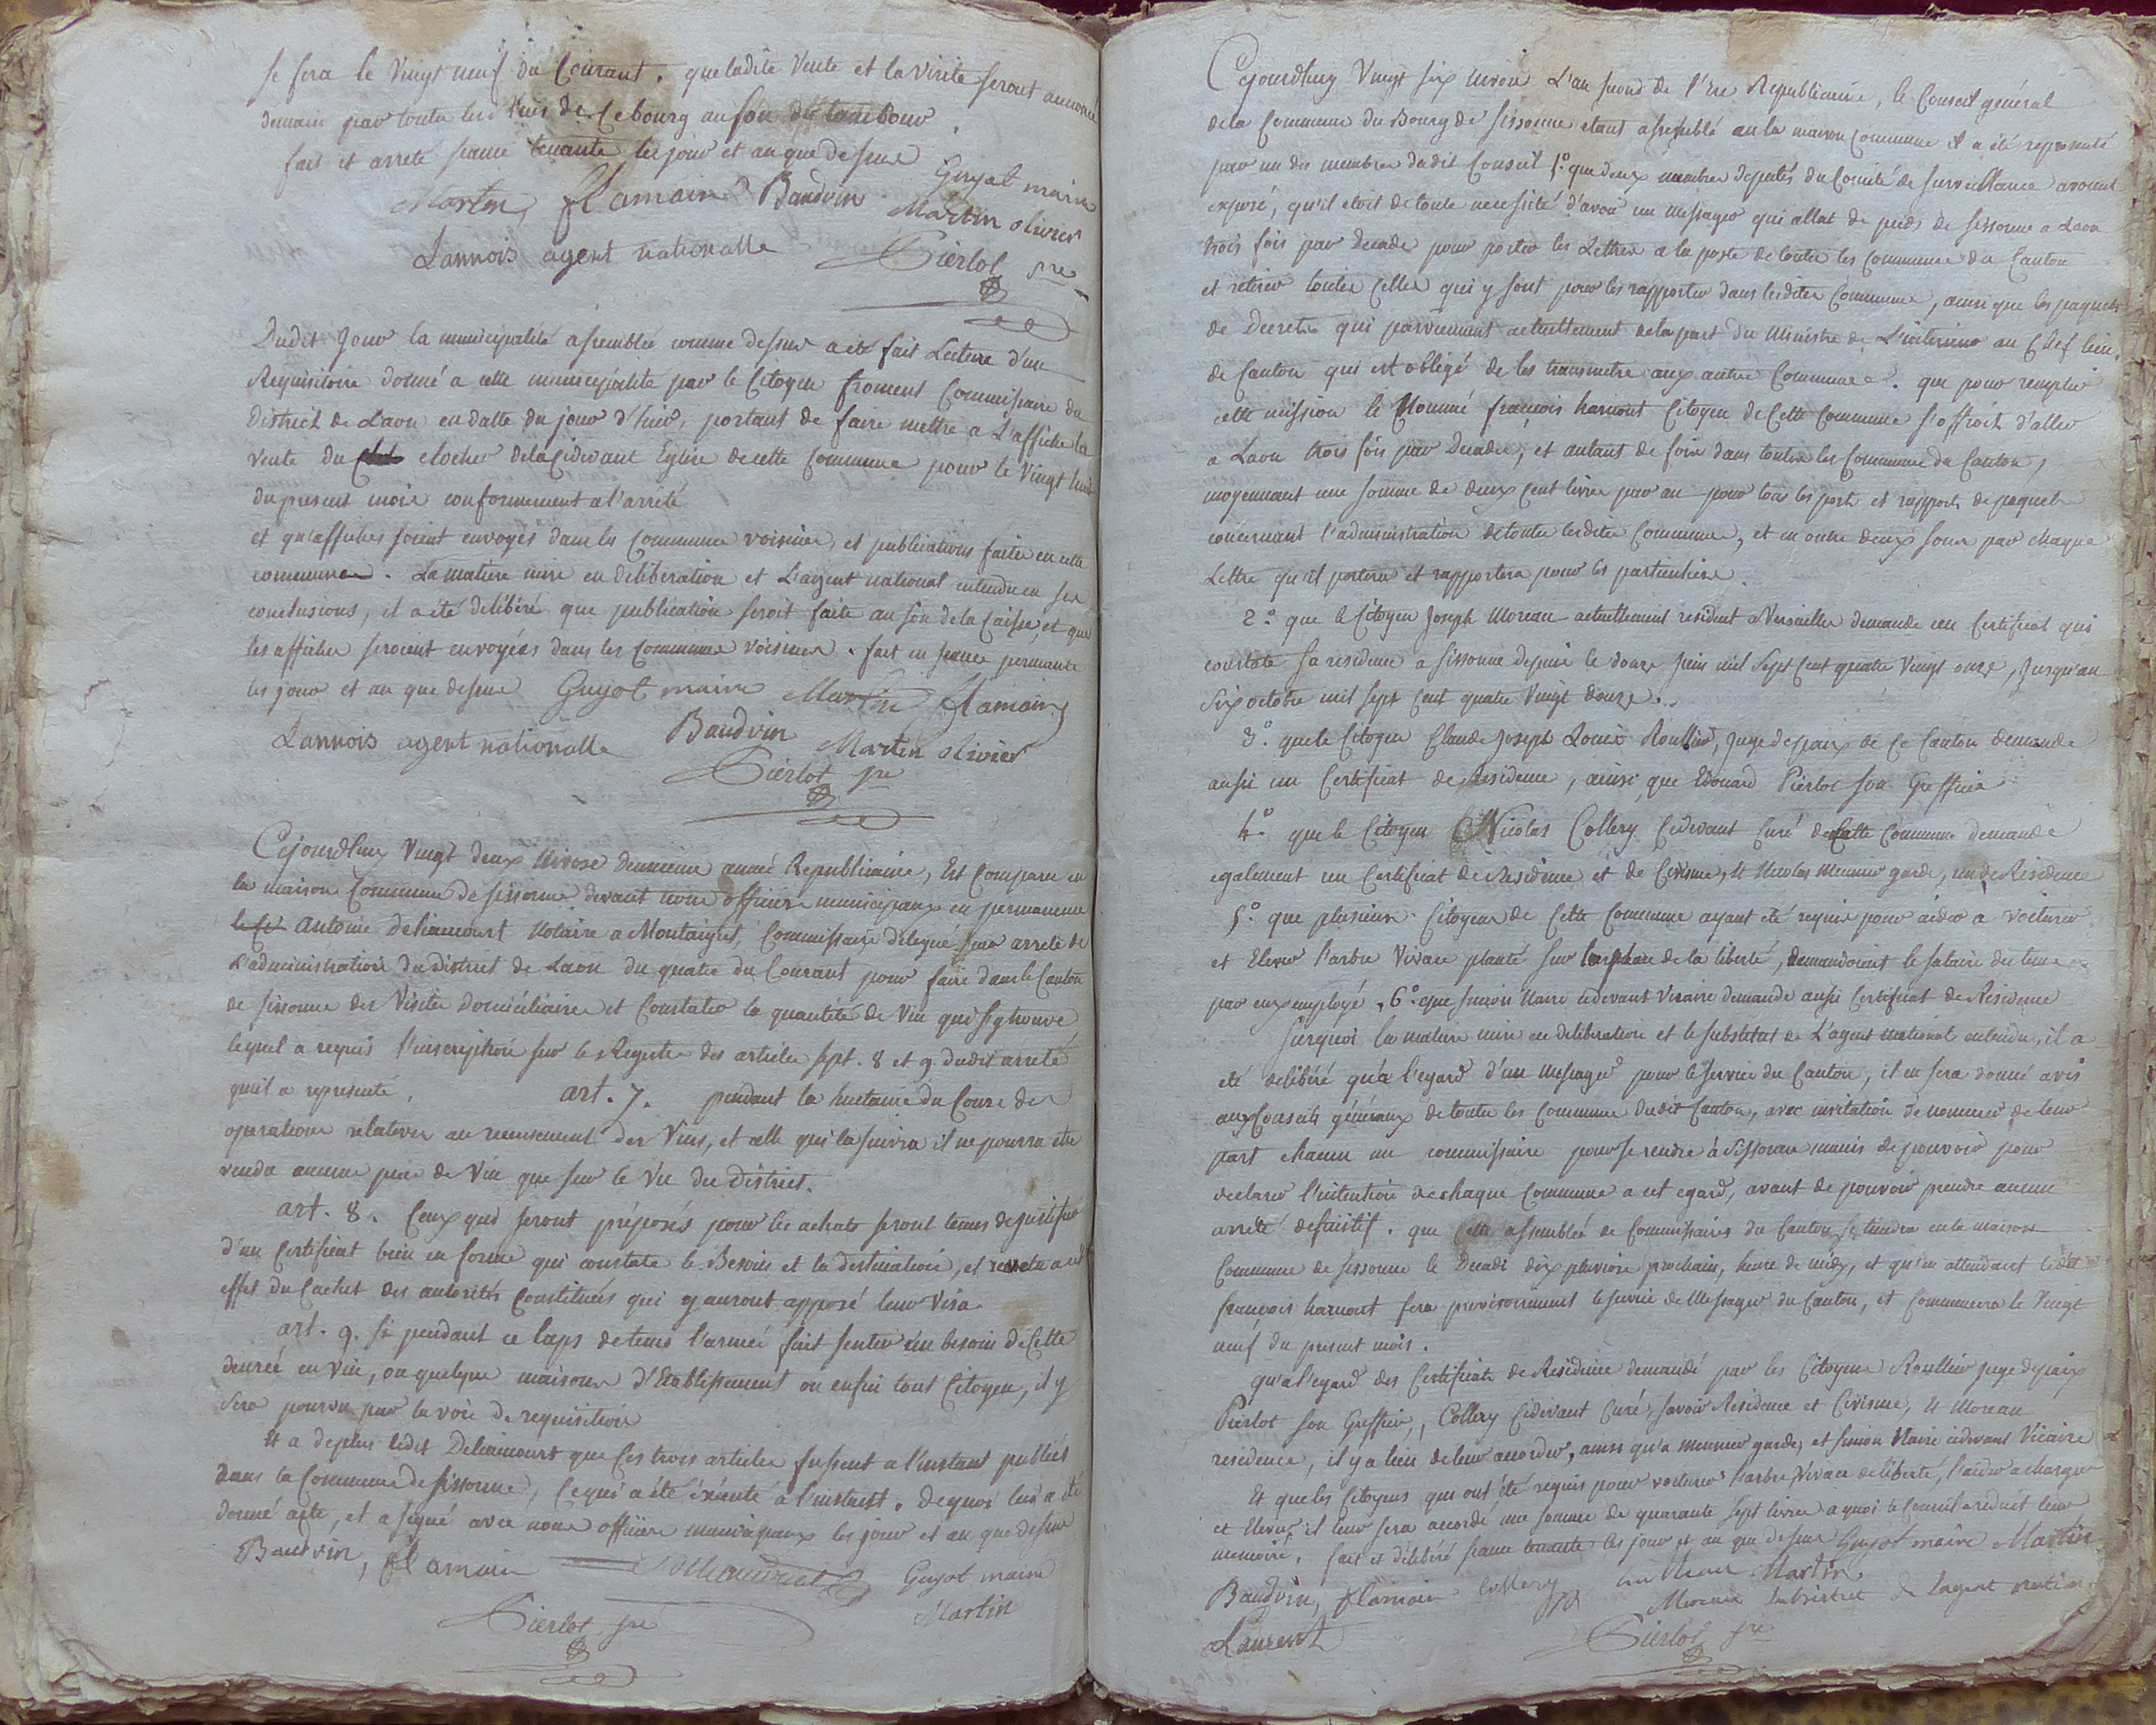 se fera le Vingt neuf du Courant. que ladite Vente et la visite seront annoncé
demain par toutes les rues de ce bourg au son du tambour.
fait et arreté seance tenante les jour et an que dessus
Guyot maire
Martin flamain Baudvin Martin olivier
Lannois agent nationalle Pierlot sre
Dudit Jour la municipalité assemblée comme dessus a eté fait Lecture d'un
Requisitoire donné a cette municipalité par le Citoyen froment Commissaire du
District de Laon en datte du jour d'hier, portant de faire mettre a l'affiche la
vente du clocher de la Cidevant Eglise de cette Commune pour le Vingt huit
du present mois conformement a l'arreté
et qu'affiches soient envoyés dans les Communes voisines, et publications faites en cette
commune. La matiere mise en Deliberation et L'agent national entendu en ses
conclusions, il a été deliberé que publication seroit faite au son de la Caisse, et que
les affiches seroient envoyées dans les Communes voisines. fait en seance permanante
les jour et an que dessus Guyot maire Martin flamain
Lannois agent nationalle Baudvin Martin olivier
Pierlot sre
Cejourdhuy Vingt deux Nivose deuxieme année Republicaine, Est Comparu en
la maison Commune de sissonne devant nous officiers municipaux en permanence
le Cn Antoine Deliancourt Notaire a Montaigut, Commissaire delegué par arreté de
L'administration du District de Laon du quatre du Courant pour faire dans le Canton
de sissonne des Visites domiciliaires et Constater la quantité de Vin qui sy trouve
lequel a requis l'inscription sur le Registre des articles sept. 8 et 9 dudit arreté
qu'il a representé. art. 7. pendant la huitaine du Cours des
operations relatives au recensement des Vins, et celle qui la suivra il ne pourra etre
vendu aucune piece de Vin que sur le Vu du District.
art. 8. Ceux qui seront préposés pour les achats seront tenus de justifier
d'un Certificat bien en forme qui constate le Besoin et la destination, et revetu a cet
effet du Cachet des autorités Constituées qui y auront apposé leur Visa.
art. 9. si pendant ce laps de tems l'armée fait sentir un besoin de Cette
denrée en Vin, ou quelque maisons d'Etablissement ou enfin tout Citoyen, il y
sera pourvu par la voie de requisition
Et a de plus ledit Deliancourt que Ces trois articles fussent a l'instant publiés
dans la Commune de sissonne, Ce qui a été éxécuté a l'instant. de quoi lui a été
donné acte, et a signé avec nous officiers municipaux les jour et an que dessus
Baudvin, flamain Guyot maire
Pierlot sre Martin
Cejourdhuy Vingt six nivose L'an second de l'Ere Republicaine, le Conseil général
de la Commune du Bourg de sissonne etant assemblé en la maison Commune il a été representé
par un des membres dudit Conseil 1.° que deux membres deputés du Comité de surveillance avoient
exposé, qu'il etoit de toute necessité d'avoir un Messager qui allat de pieds de sissonne a Laon
trois fois par Decade pour porter les Lettres a la poste de toutes les Communes du Canton
et retirer toutes Celles qui y sont pour les rapporter dans lesdites Communes, ainsi que les paquets
de Decrets qui parviennent actuellement de la part du Ministre de L'interieur au Chef lieu
de Canton qui est obligé de les transmettre aux autres Communes. que pour remplir
cette mission le Nommé françois harnout Citoyen de Cette Commune s'offroit d'aller
a Laon trois fois par Decade, et autant de fois dans toutes les Communes du Canton,
moyennant une somme de deux Cent livres par an pour tous les ports et rapports de paquets
concernant l'administration de toutes lesdites Communes, et en outre deux sous par chaque
Lettre qu'il portera et rapportera pour les particuliers.
2.° que le Citoyen Joseph Moreau actuellement resident a Versailles demande un Certificat qui
constate sa residence a sissonne depuis le douze Juin mil sept Cent quatre Vingt onze, Jusqu'au
six octobre mil sept Cent quatre Vingt douze.
3.° que le Citoyen Claude Joseph Louis Roullier, Juge de paix de Ce Canton demande
aussi un Certificat de Residence, ainsi que Edouard Pierlot son Greffier
4.° que le Citoyen Nicolas Collery Cidevant Curé de Cette Commune demande
egalement un Certificat de Residence et de Civisme, et Nicolas Meunier garde, un de Residence
5.° que plusieurs Citoyens de Cette Commune ayant eté requis pour aider a voiturer
et Elever l'arbre Vivace planté sur la place de la liberté, demandoient le salaire du tems
par eux employé, 6.° que simon Naire cidevant Vicaire demande aussi Certificat de Residence
surquoi la matiere mise en deliberation et le substitut de L'agent national entendu, il a
eté deliberé qu'a l'egard d'un Messager pour le service du Canton, il en sera donné avis
aux Conseils généraux de toutes les Communes dudit Canton, avec invitation de nommer de leur
part chacun un commissaire pour se rendre à Sissonne munis de pouvoir pour
declarer l'intention de chaque Commune a cet egard, avant de pouvoir prendre aucun
arrêté definitif. que Cette assemblée de Commissaires du Canton se tiendra en la maison
Commune de sissonne le Decadi dix pluviose prochain, heure de midy, et qu'en attendant ledit
françois harnout fera provisoirement le service de Messager du Canton, et Commencera le Vingt
neuf du present mois.
qu'a l'egard des Certificats de Residence demandé par les Citoyens Roullier juge de paix
Pierlot son Greffier, Collery Cidevant Curé, savoir Residence et Civisme, et Moreau
residence, il y a lieu de leur accorder, ainsi qu'a Meunier garde, et simon Naire cidevant Vicaire
Et que les Citoyens qui ont été requis pour voiturer l'arbre Vivace de liberté, l'aider a charger
et Elever il leur sera accordé une somme de quarante sept livres a quoi le Conseil a reduit leur
memoire. fait et délibéré seance tenante les jour et an que dessus Guyot maire Martin
Baudvin, flamain Collery Martin
Moreau substitut de lagent nation.
Laurent Pierlot sre